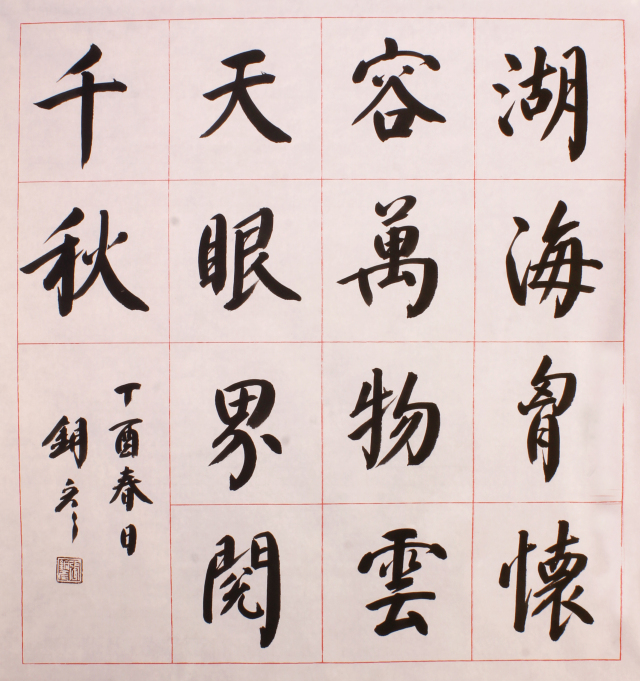 湖海胷懷
容萬物雲
天眼界閱
千秋
丁酉春日